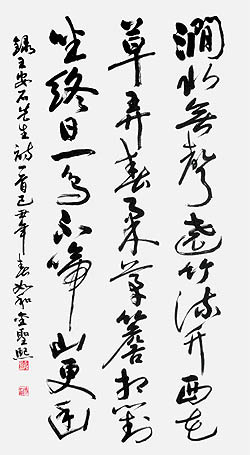 澗水無聲遶竹流竹西花
草弄春柔茅簷相對
坐終日一鳥不啼山更幽
錄王安石先生詩一首己丑年春金聖熙